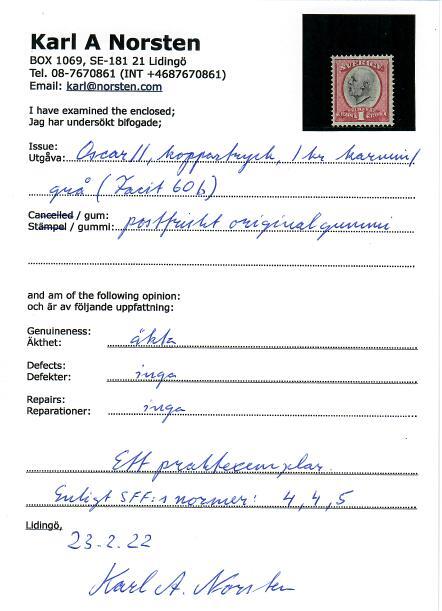 Karl A Norsten
BOX 1069, SE-181 21 Lidingö
Tel. 08-7670861 (INT +4687670861)
Email: karl@norsten.com
I have examined the enclosed;
Jag har undersökt bifogade;
SVERIGE
1
Issue:
Utgåva: Oscar II, koppartryck, 1 kr karmin/
grå (Facit 60b)
Cancelled / gum:
Stämpel / gummi: postfriskt originalgummi
and am of the following opinion:
och är av följande uppfattning:
Genuineness:
Äkthet: äkta
Defects:
Defekter: inga
Repairs:
Reparationer: inga
Ett praktexemplar.
Enligt SFF:s normer: 4, 4, 5
Lidingö,
23.2.22
Karl A. Norsten